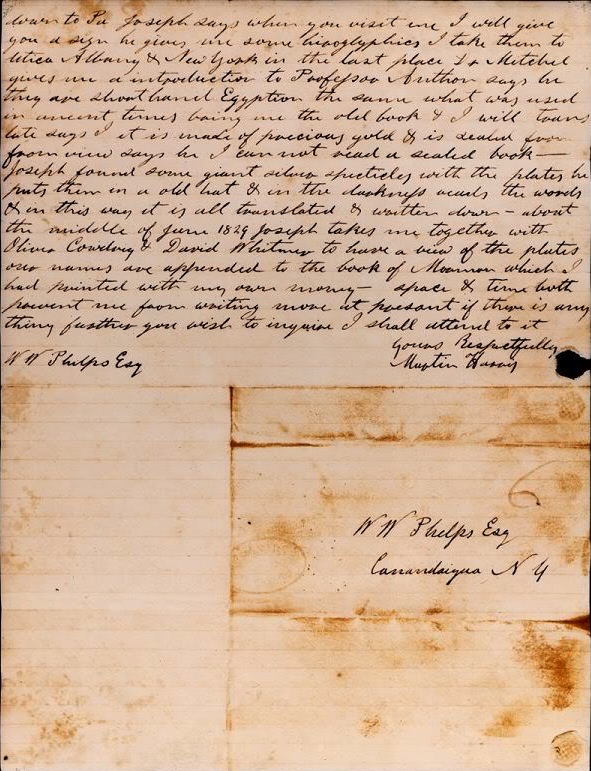 down to Pa Joseph says when you visit me I will give
you a sign he gives me some hiroglyphics I take them to
Utica Albany & New York in the last place Dr Mitchel
gives me a introduction to Professor Anthon says he
they are short hand Egyption the same what was used
in ancent times bring me the old book & I will trans
late says I it is made of precious gold & is sealed from
from view says he I cannot read a sealed book—
Joseph found some giant silver specticles with the plates he
puts them in a old hat & in the darkness reads the words
& in this way it is all translated & written down — about
the middle of June 1829 Joseph takes me together with
Oliver Cowdrey & David Whitmer to have a view of the plates
our names are appended to the book of Mormon which I
had printed with my own money — space & time both
prevent me from writing more at presant if there is any
thing further you wish to inquire I shall attend to it
Yours Respectfully
Martin Harris
W W Phelps Esq
6
W W Phelps Esq
Canandaigua N Y